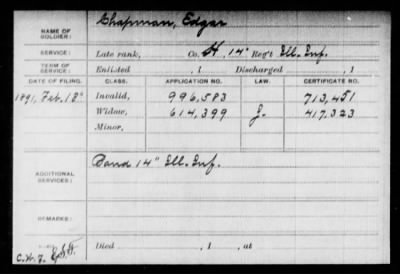 NAME OF SOLDIER: Chapman, Edgar
SERVICE: Late rank, Co. H, 14" Reg't Ill. Inf.
TERM OF SERVICE: Enlisted , 1 Discharged , 1
DATE OF FILING. CLASS. APPLICATION NO. LAW. CERTIFICATE NO.
1891, Feb. 18" Invalid, 996,583 713,451
Widow, 614,399 J. 417,323
Minor,
ADDITIONAL SERVICES: Band 14" Ill. Inf.
REMARKS:
C. H. 7.
Died , 1 , at